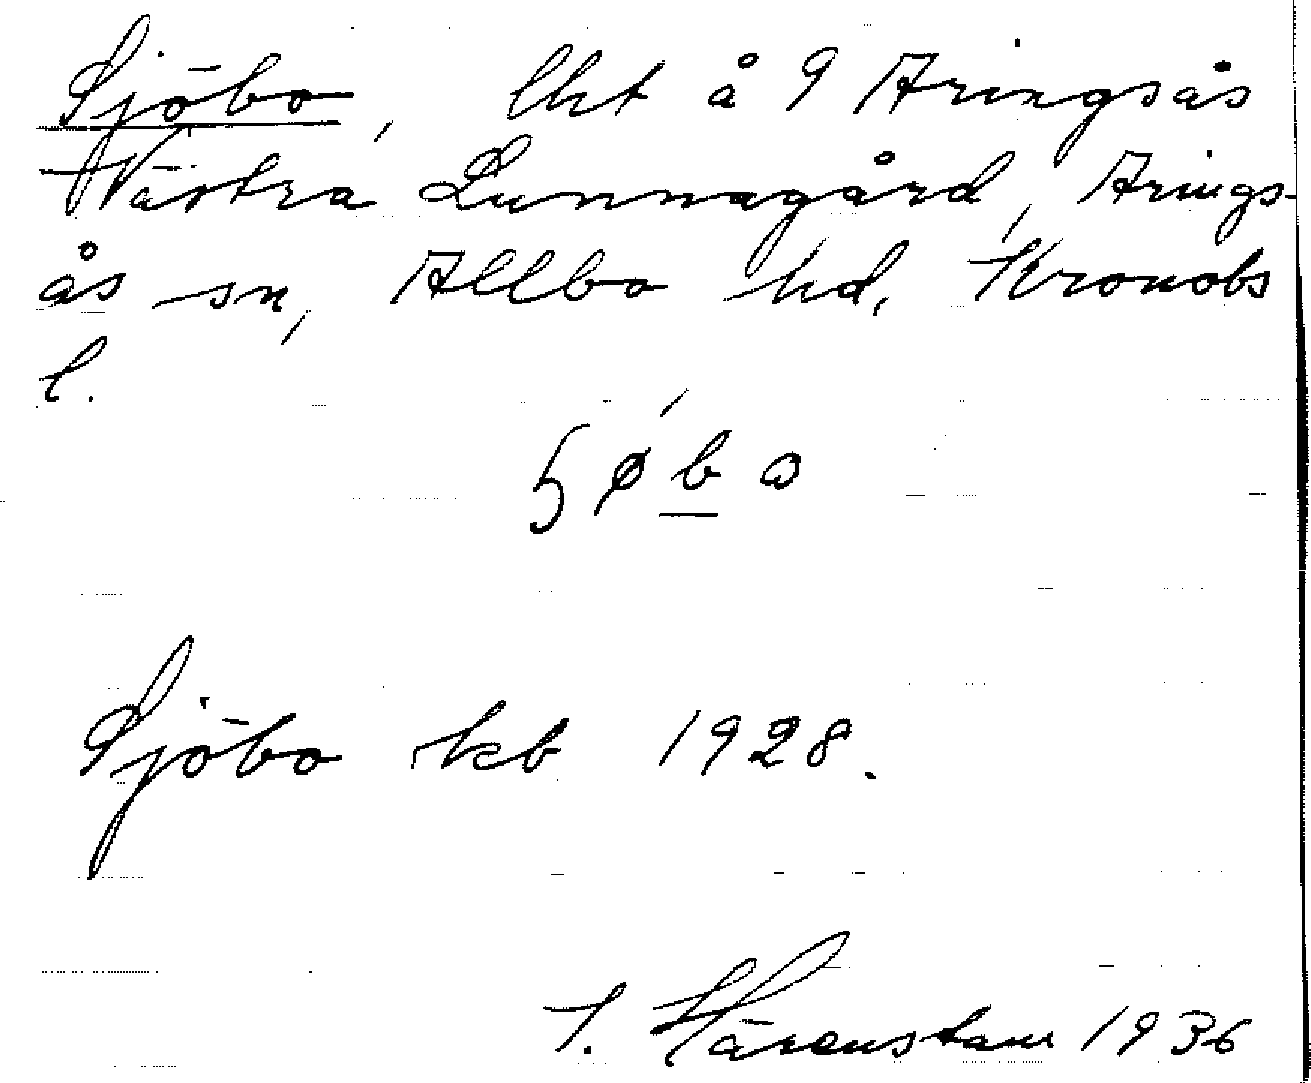 Sjöbo, lht å 9 Aringsås
Västra Lunnagård, Arings-
ås sn, Allbo hd, Kronobs
l.
Sjöbo kb 1928.
1936